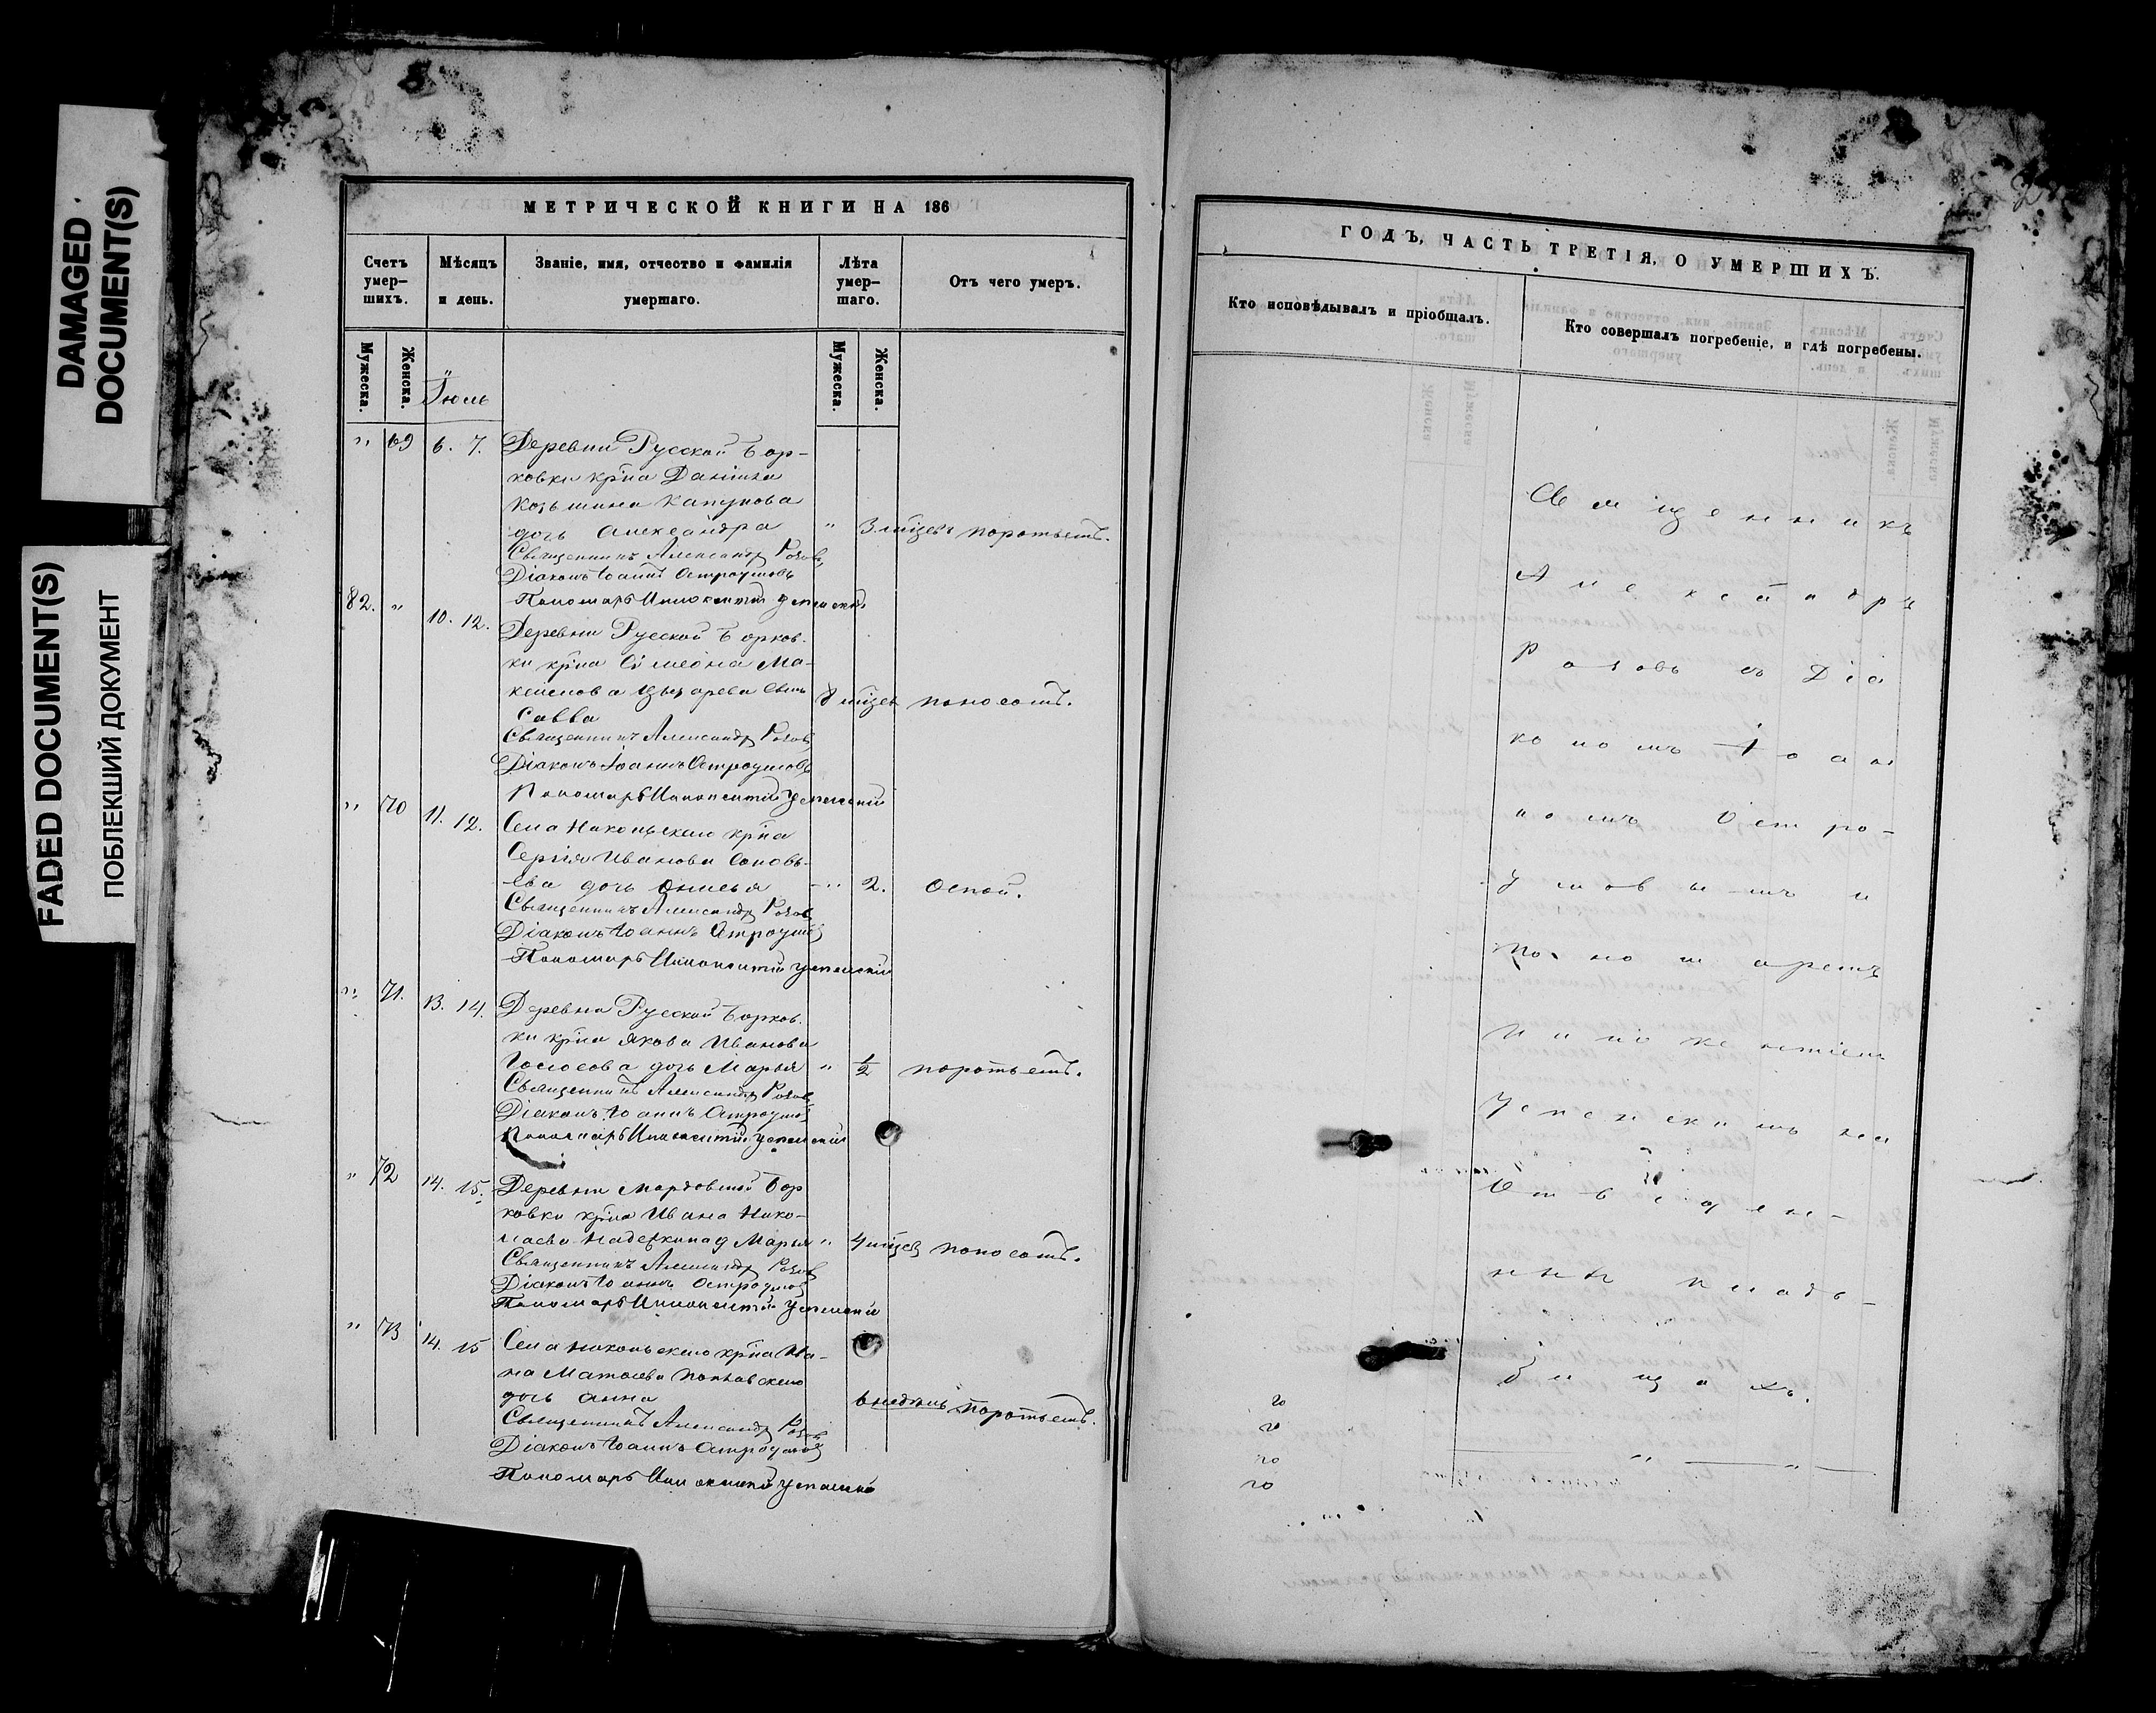 DAMAGED
DOCUMENT(S)
FADED DOCUMENT(S)
ПОБЛЕКШИЙ ДОКУМЕНТ
МЕТРИЧЕСКОЙ КНИГИ НА 186
Счетъ умер-шихъ.
Мѣсяцъ и день.
Званіе, имя, отчество и фамилія умершаго.
Лѣта умер-шаго.
Отъ чего умеръ.
Мужеска.
Женска.
Мужеска.
Женска.
Іюль
" 69 6. 7. Деревни Русской Бор-
ковки кр̃на Даніила
Козьмина
дочь Александра " 3 мѣсяц поротьемъ.
Священникъ Александръ Розовъ
Діаконъ Іоаннъ Остроумовъ
Пономарь Иннокентій Успенскій
82. " 10. 12. Деревни Русской Борков-
ки кр̃на Симеона Ма-
ксимова сынъ
Савва мѣсяц поносомъ.
Священникъ Александръ Розовъ
Діаконъ Іоаннъ Остроумовъ
Пономарь Иннокентій Успенскій
" 70 11. 12. Села Никольскаго кр̃на
Сергія Иванова Соловь-
ева дочь " 2. Оспой.
Священникъ Александръ Розовъ
Діаконъ Іоаннъ Остроумовъ
Пономарь Иннокентій Успенскій
" 71. 13. 14. Деревни Русской Борков-
ки кр̃на Якова Иванова
дочь Марья " 1/2 поротьемъ.
Священникъ Александръ Розовъ
Діаконъ Іоаннъ Остроумовъ
Пономарь Иннокентій Успенскій
" 72 14. 15. Деревни Мордовской Бор
ковки кр̃на Ивана Нико-
лаева Надеткина д Марья " 4 мѣсяц поносомъ.
Священникъ Александръ Розовъ
Діаконъ Іоаннъ Остроумовъ
Пономарь Иннокентій Успенскій
" 73 14. 15 Села Никольскаго кр̃на Ива-
на Матвѣева
дочь Анна 6 недѣль поротьемъ.
Священникъ Александръ Розовъ
Діаконъ Іоаннъ Остроумовъ
Пономарь Иннокентій Успенскій
ГОДЪ, ЧАСТЬ ТРЕТІЯ, О УМЕРШИХЪ.
Кто исповѣдывалъ и пріобщалъ.
Кто совершалъ погребеніе, и гдѣ погребены.
Священникъ
Александръ
Розовъ съ Діа
кономъ Іоан
номъ Остро-
умовымъ и
пономаремъ
Иннокентіемъ
Успенскимъ на
Отведен-
номъ кладъ-
бищахъ.